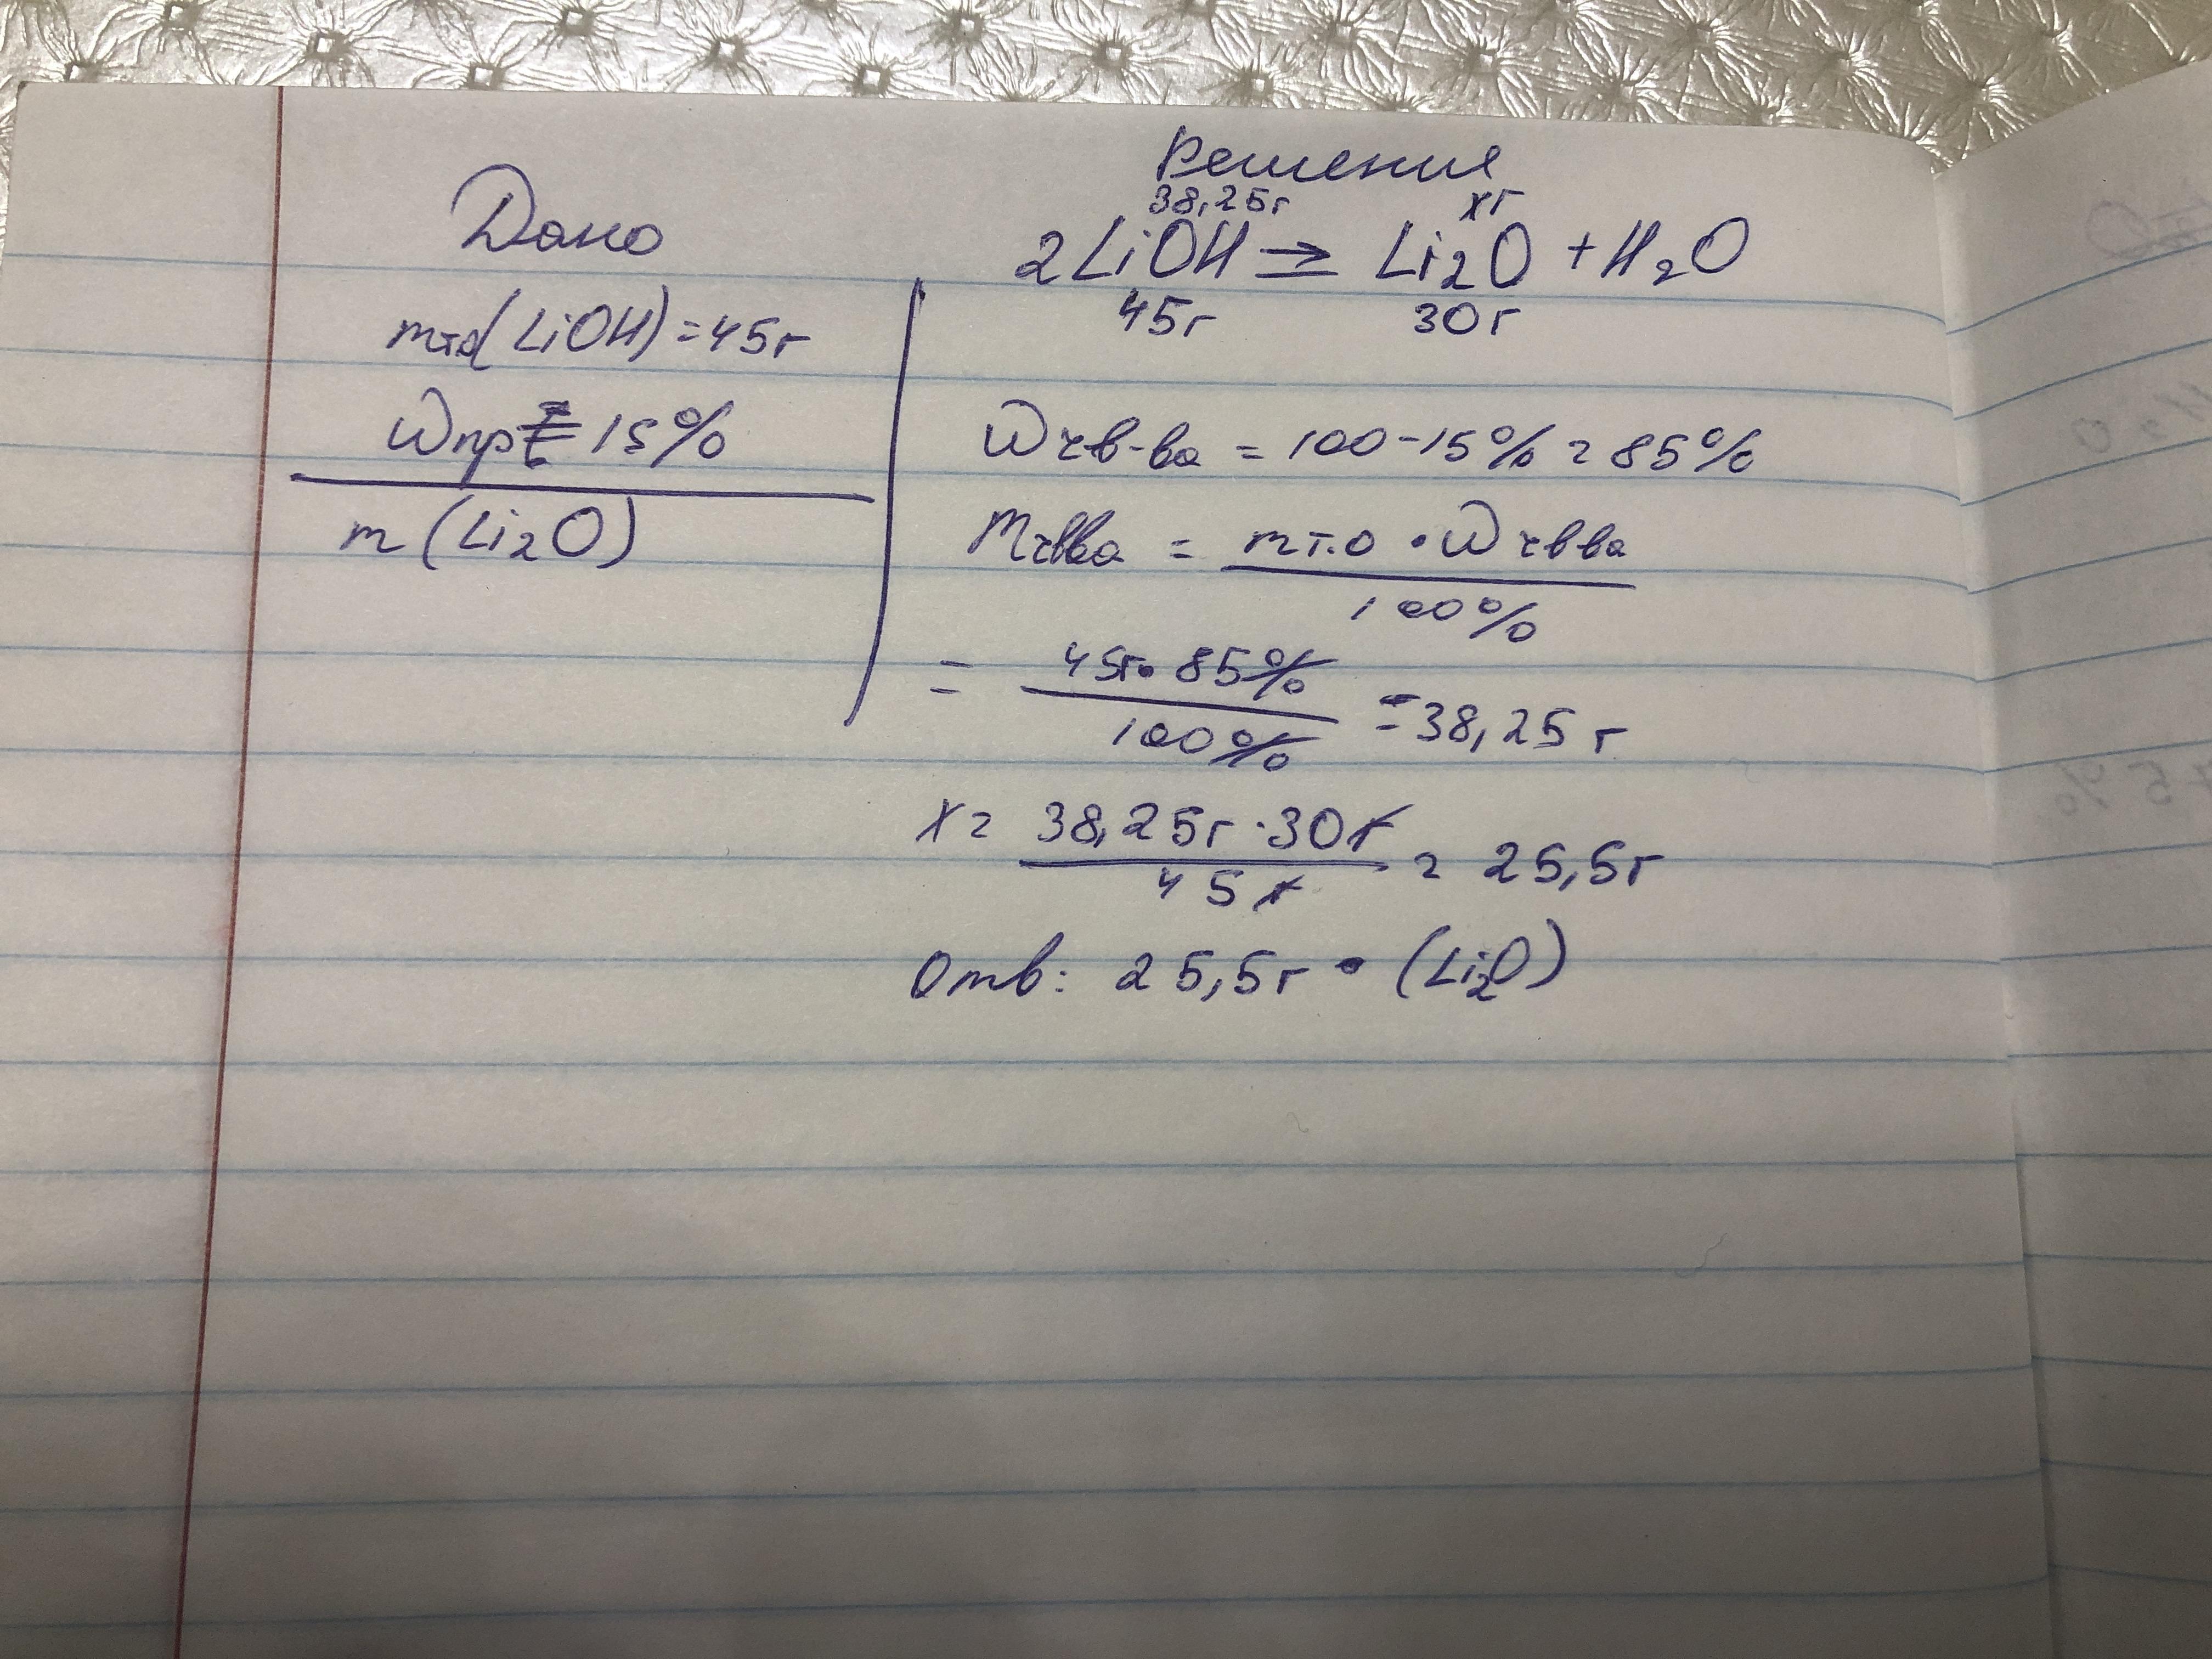 Дано
mтo(LiOH)=45г
Wпр= 15%
m (Li2O)
Решения
38,25г xг
2LiOH → Li2O + H2O
45г 30г
Wчв-ва = 100-15% = 85%
Mчвва = mт.о • Wчвва
100%
= 45г• 85%
100% = 38,25 г
x = 38,25г·30г
45г = 25,5г
Отв: 25,5г • (Li2O)